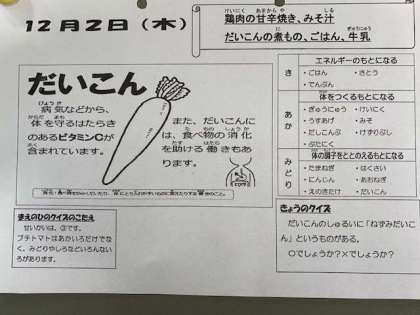 12月2日（木）
鶏肉の甘辛焼き、みそ汁
だいこんの煮もの、ごはん、牛乳
だいこん
病気などから、
体を守るはたらき
のあるビタミンCが
含まれています。
また、だいこんに
は、食べ物の消化
を助ける働きもあ
ります。
まえのひのクイズのこたえ
せいかいは、②です。
プチトマトはあかいろだけでな
く、みどりやしろなどいろんない
ろがあります。
き
エネルギーのもとになる
・ごはん ・さとう
・でんぷん
あか
体をつくるもとになる
・ぎゅうにゅう ・けいにく
・うすあげ ・みそ
・だしこんぶ ・けずりぶし
・ぶたにく
みどり
体の調子をととのえるもとになる
・たまねぎ ・はくさい
・にんじん ・あおねぎ
・えのきたけ ・だいこん
きょうのクイズ
だいこんのしゅるいに「ねずみだいこ
ん」というものがある。
○でしょうか？×でしょうか？